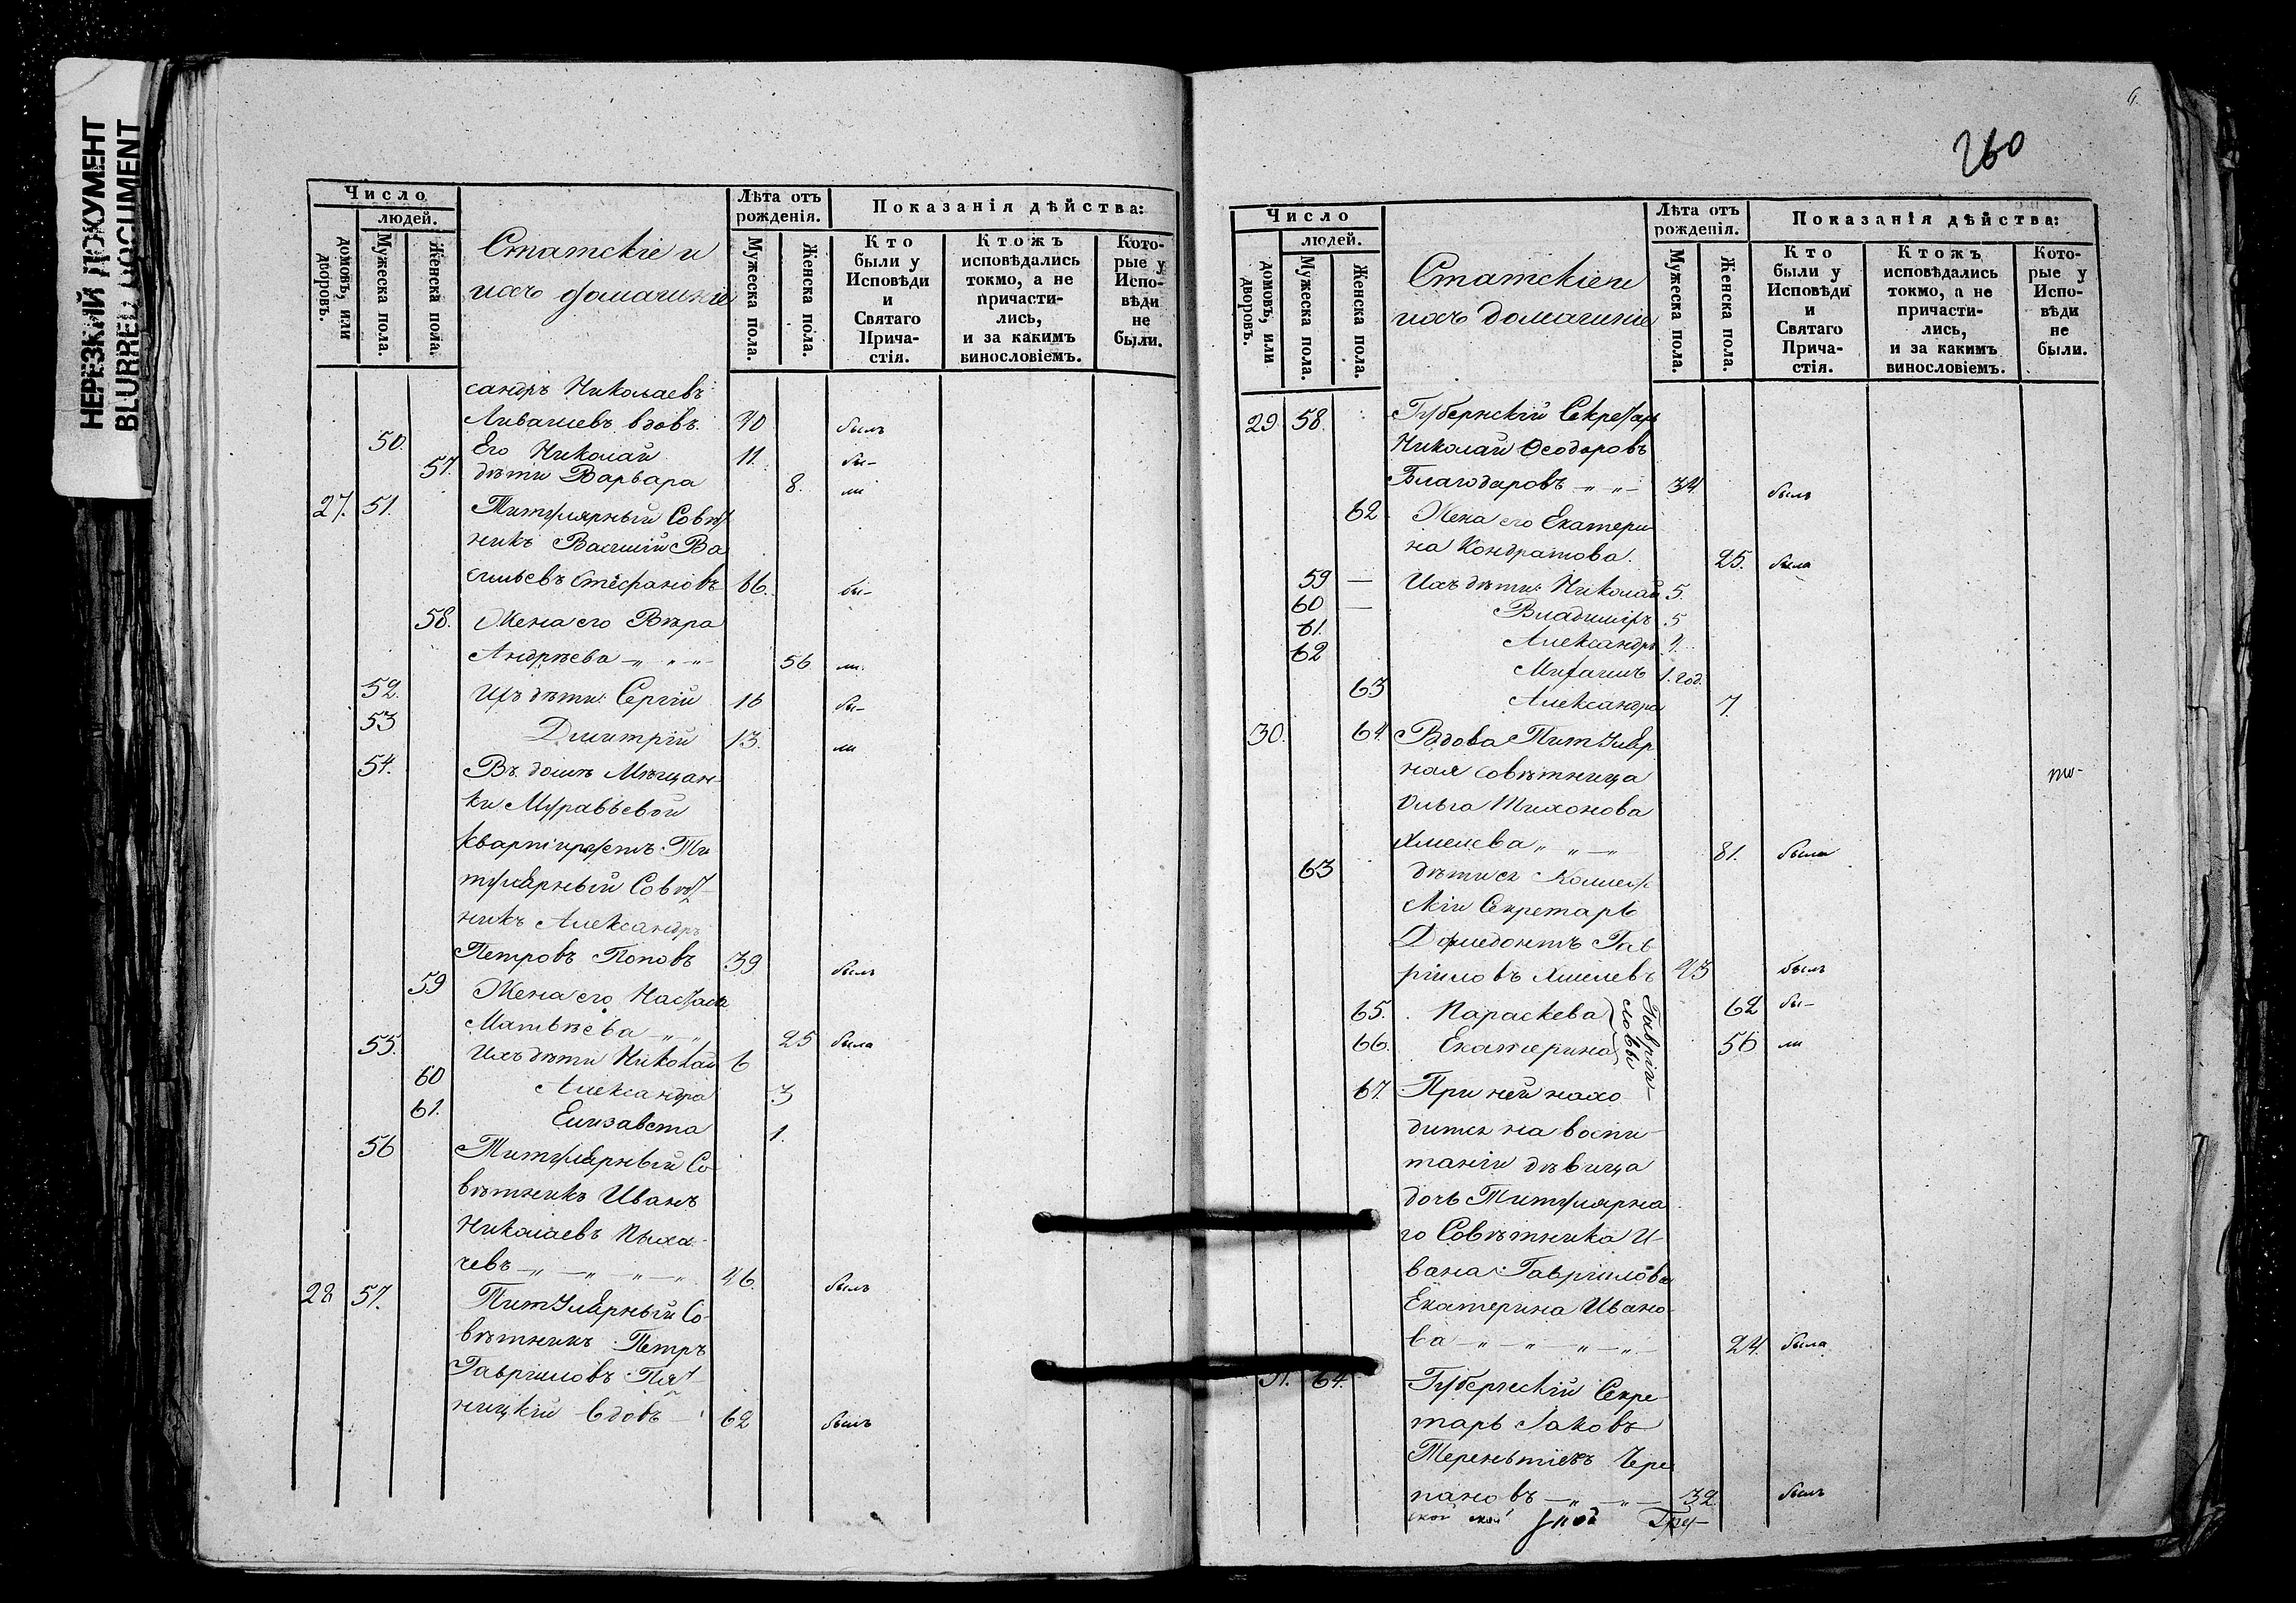 НЕРЕЗКИЙ ДОКУМЕНТ
BLURRED DOCUMENT
Число
людей.
домовъ, или дворовъ.
Мужеска пола.
Женска пола.
Статскіе и
ихъ домашніе
Лѣта отъ рожденія.
Мужеска пола.
Женска пола.
Показанія дѣйства:
Кто были у Исповѣди и Святаго Прича-стія.
Ктожъ исповѣдались токмо, а не причасти-лись, и за какимъ винословіемъ.
Кото-рые у Испо-вѣди не были.
сандръ Николаевъ
Ливашевъ вдовъ. 40 былъ
50. Его Николай 11. бы-
57. дѣти Варвара 8. ли
27. 51. Титулярный Совѣт
никъ Василій Ва
сильевъ Стефановъ 66. бы-
58. Жена его Вѣра
Андреева 56 ли.
52. Ихъ дѣти: Сергій 16 бы-
53 Димитрій 13. ли
54. Въ домѣ Мѣщан-
ки Муравьевой
квартируетъ Ти
тулярный Совѣт-
никъ Александръ
Петровъ Поповъ 39 былъ
59 Жена его Настасія
Матвѣева 25 была
55. Ихъ дѣти Николай 6
60 Александра 3
61. Елизавета 1.
56 Титулярный Со-
вѣтникъ Иванъ
Николаевъ Пыха-
чевъ 46. былъ
28 57. Титулярный Со-
вѣтникъ Петръ
Гавриловъ Пят-
ницкій вдовъ 62 былъ
260
Число
людей.
домовъ, или дворовъ.
Мужеска пола.
Женска пола.
Статскіе и
ихъ домашніе
Лѣта отъ рожденія.
Мужеска пола.
Женска пола.
Показанія дѣйства:
Кто были у Исповѣди и Святаго Прича-стія.
Ктожъ исповѣдались токмо, а не причасти-лись, и за какимъ винословіемъ.
Кото-рые у Испо-вѣди не были.
29 58. Губернскій Секретарь
Николай Ѳеодоровъ
Благодаровъ 34. былъ
62 Жена его Екатери
на Кондратова. 25. была
59 — Ихъ дѣти: Николай 5.
60 — Владиміръ 5
61. Александръ 4.
62 Михаилъ 1. год.
63 Александра 7.
30. 64. Вдова Титуляр
ная совѣтница
Ольга Тихонова
Хмелева 81. была
63 дѣти ея Коллеж
скій Секретарь
Дормедонтъ Гав
риловъ Хмелевъ 43 былъ
65. Параскева 62 бы-
66. Екатерина 56 ли
Гаврі-
ловы
67. При ней нахо
дится на воспи-
таніи дѣвица
дочь Титулярна
го Совѣтника И-
вана Гаврилова
Екатерина Ивано-
ва 24. была
31. 64. Губернскій Секре-
тарь Іаковъ
Терентіевъ Чере
пановъ 32. былъ